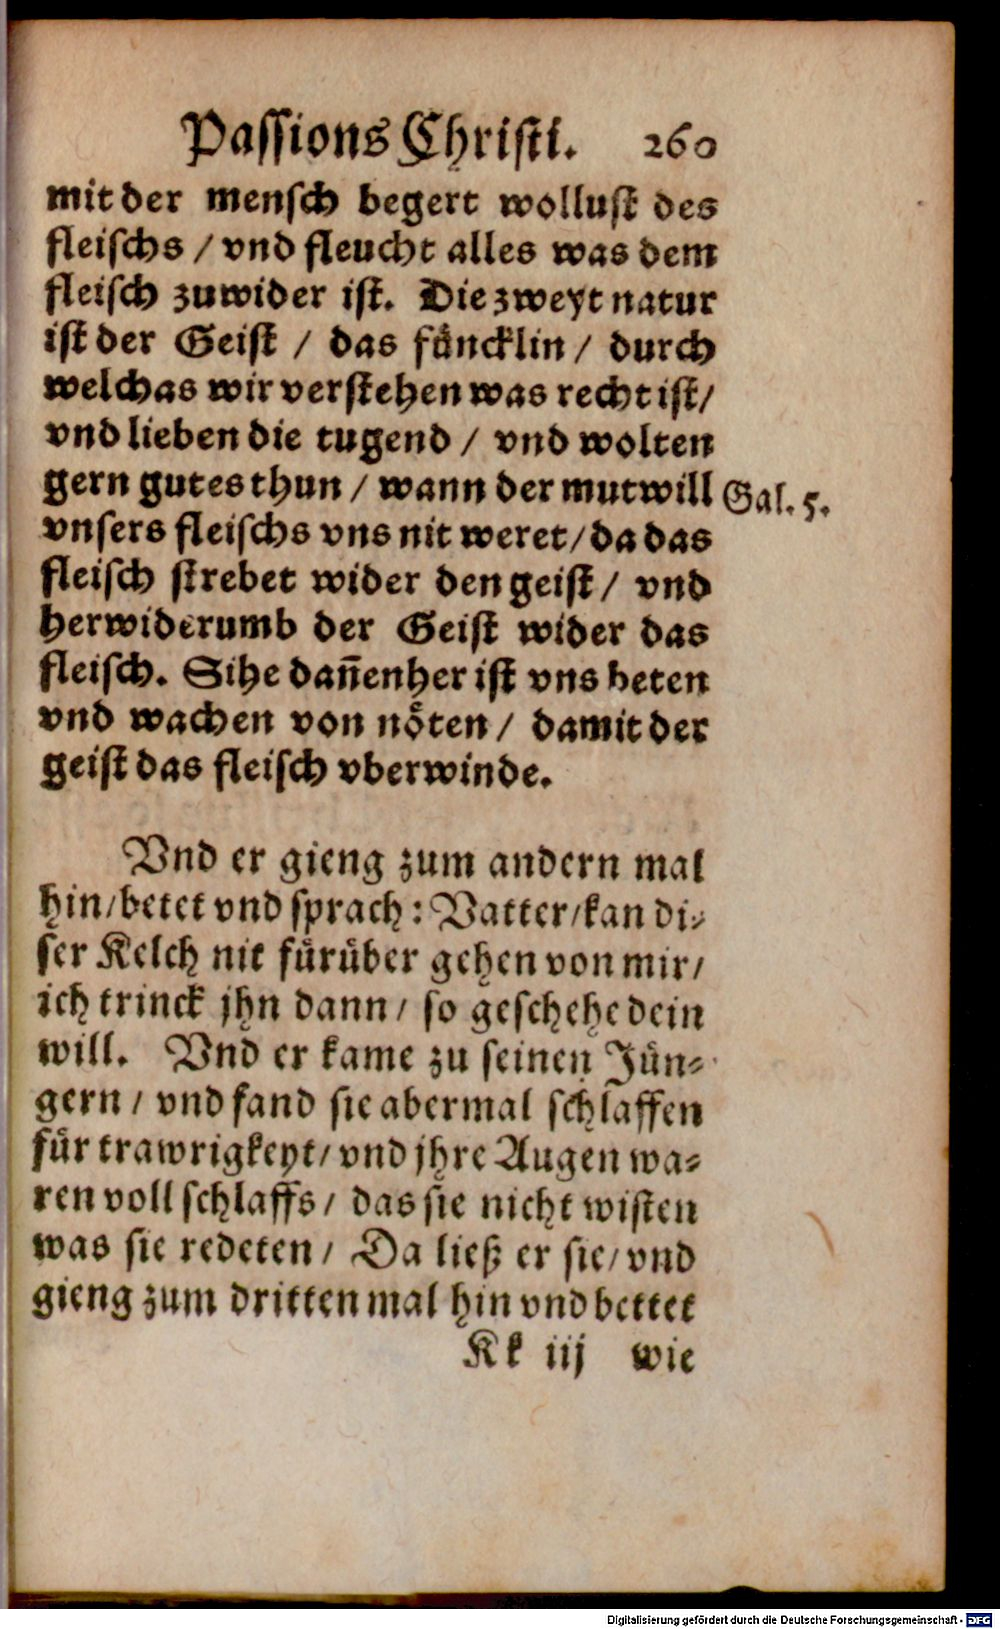 Passions Christi. 260
mit der mensch begert wollust des
fleischs / vnd fleucht alles was dem
fleisch zuwider ist. Die zweyt natur
ist der Geist / das füncklin / durch
welchas wir verstehen was recht ist/
vnd lieben die tugend / vnd wolten
gern gutes thun / wann der mutwill
Gal. 5.
vnsers fleischs vns nit weret/ da das
fleisch strebet wider den geist / vnd
herwiderumb der Geist wider das
fleisch. Sihe dañenher ist vns beten
vnd wachen von nöten / damit der
geist das fleisch vberwinde.
Vnd er gieng zum andern mal
hin/betet vnd sprach: Vatter/kan di-
ser Kelch nit fürüber gehen von mir/
ich trinck jhn dann / so geschehe dein
will. Vnd er kame zu seinen Jün-
gern / vnd fand sie abermal schlaffen
für trawrigkeyt/ vnd jhre Augen wa-
ren voll schlaffs / das sie nicht wisten
was sie redeten / Da ließ er sie/ vnd
gieng zum dritten mal hin vnd bettet
Kk iij wie
Digitalisierung gefördert durch die Deutsche Forschungsgemeinschaft - DFG